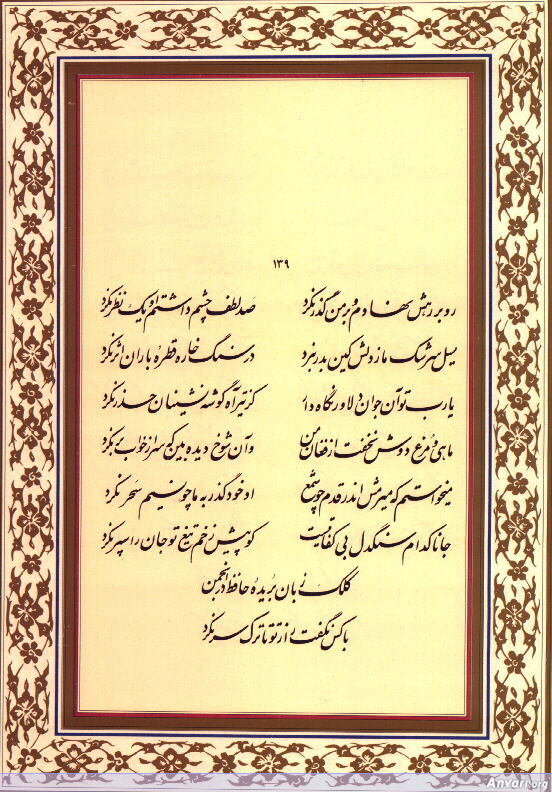 ۱۳۹
رو بر رهش نهادم و بر من گذر نکرد صد لطف چشم داشتم و یک نظر نکرد
سیل سرشک ما ز دلش کین بدر نبرد در سنگ خاره قطرهٔ باران اثر نکرد
یارب تو آن جوان دلاور نگاه دار کز تیر آه گوشه نشینان حذر نکرد
ماهی و مرغ دوش نخفت از فغان من وآن شوخ دیده بین که سر از خواب بر نکرد
میخواستم که میرمش اندر قدم چو شمع او خود گذر به ما چو نسیم سحر نکرد
جانا کدام سنگدل بی کفایتست کو پیش زخم تیغ تو جان را سپر نکرد
کلک زبان بریدهٔ حافظ در انجمن
با کس نگفت راز تو تا ترک سر نکرد
Anvari.org